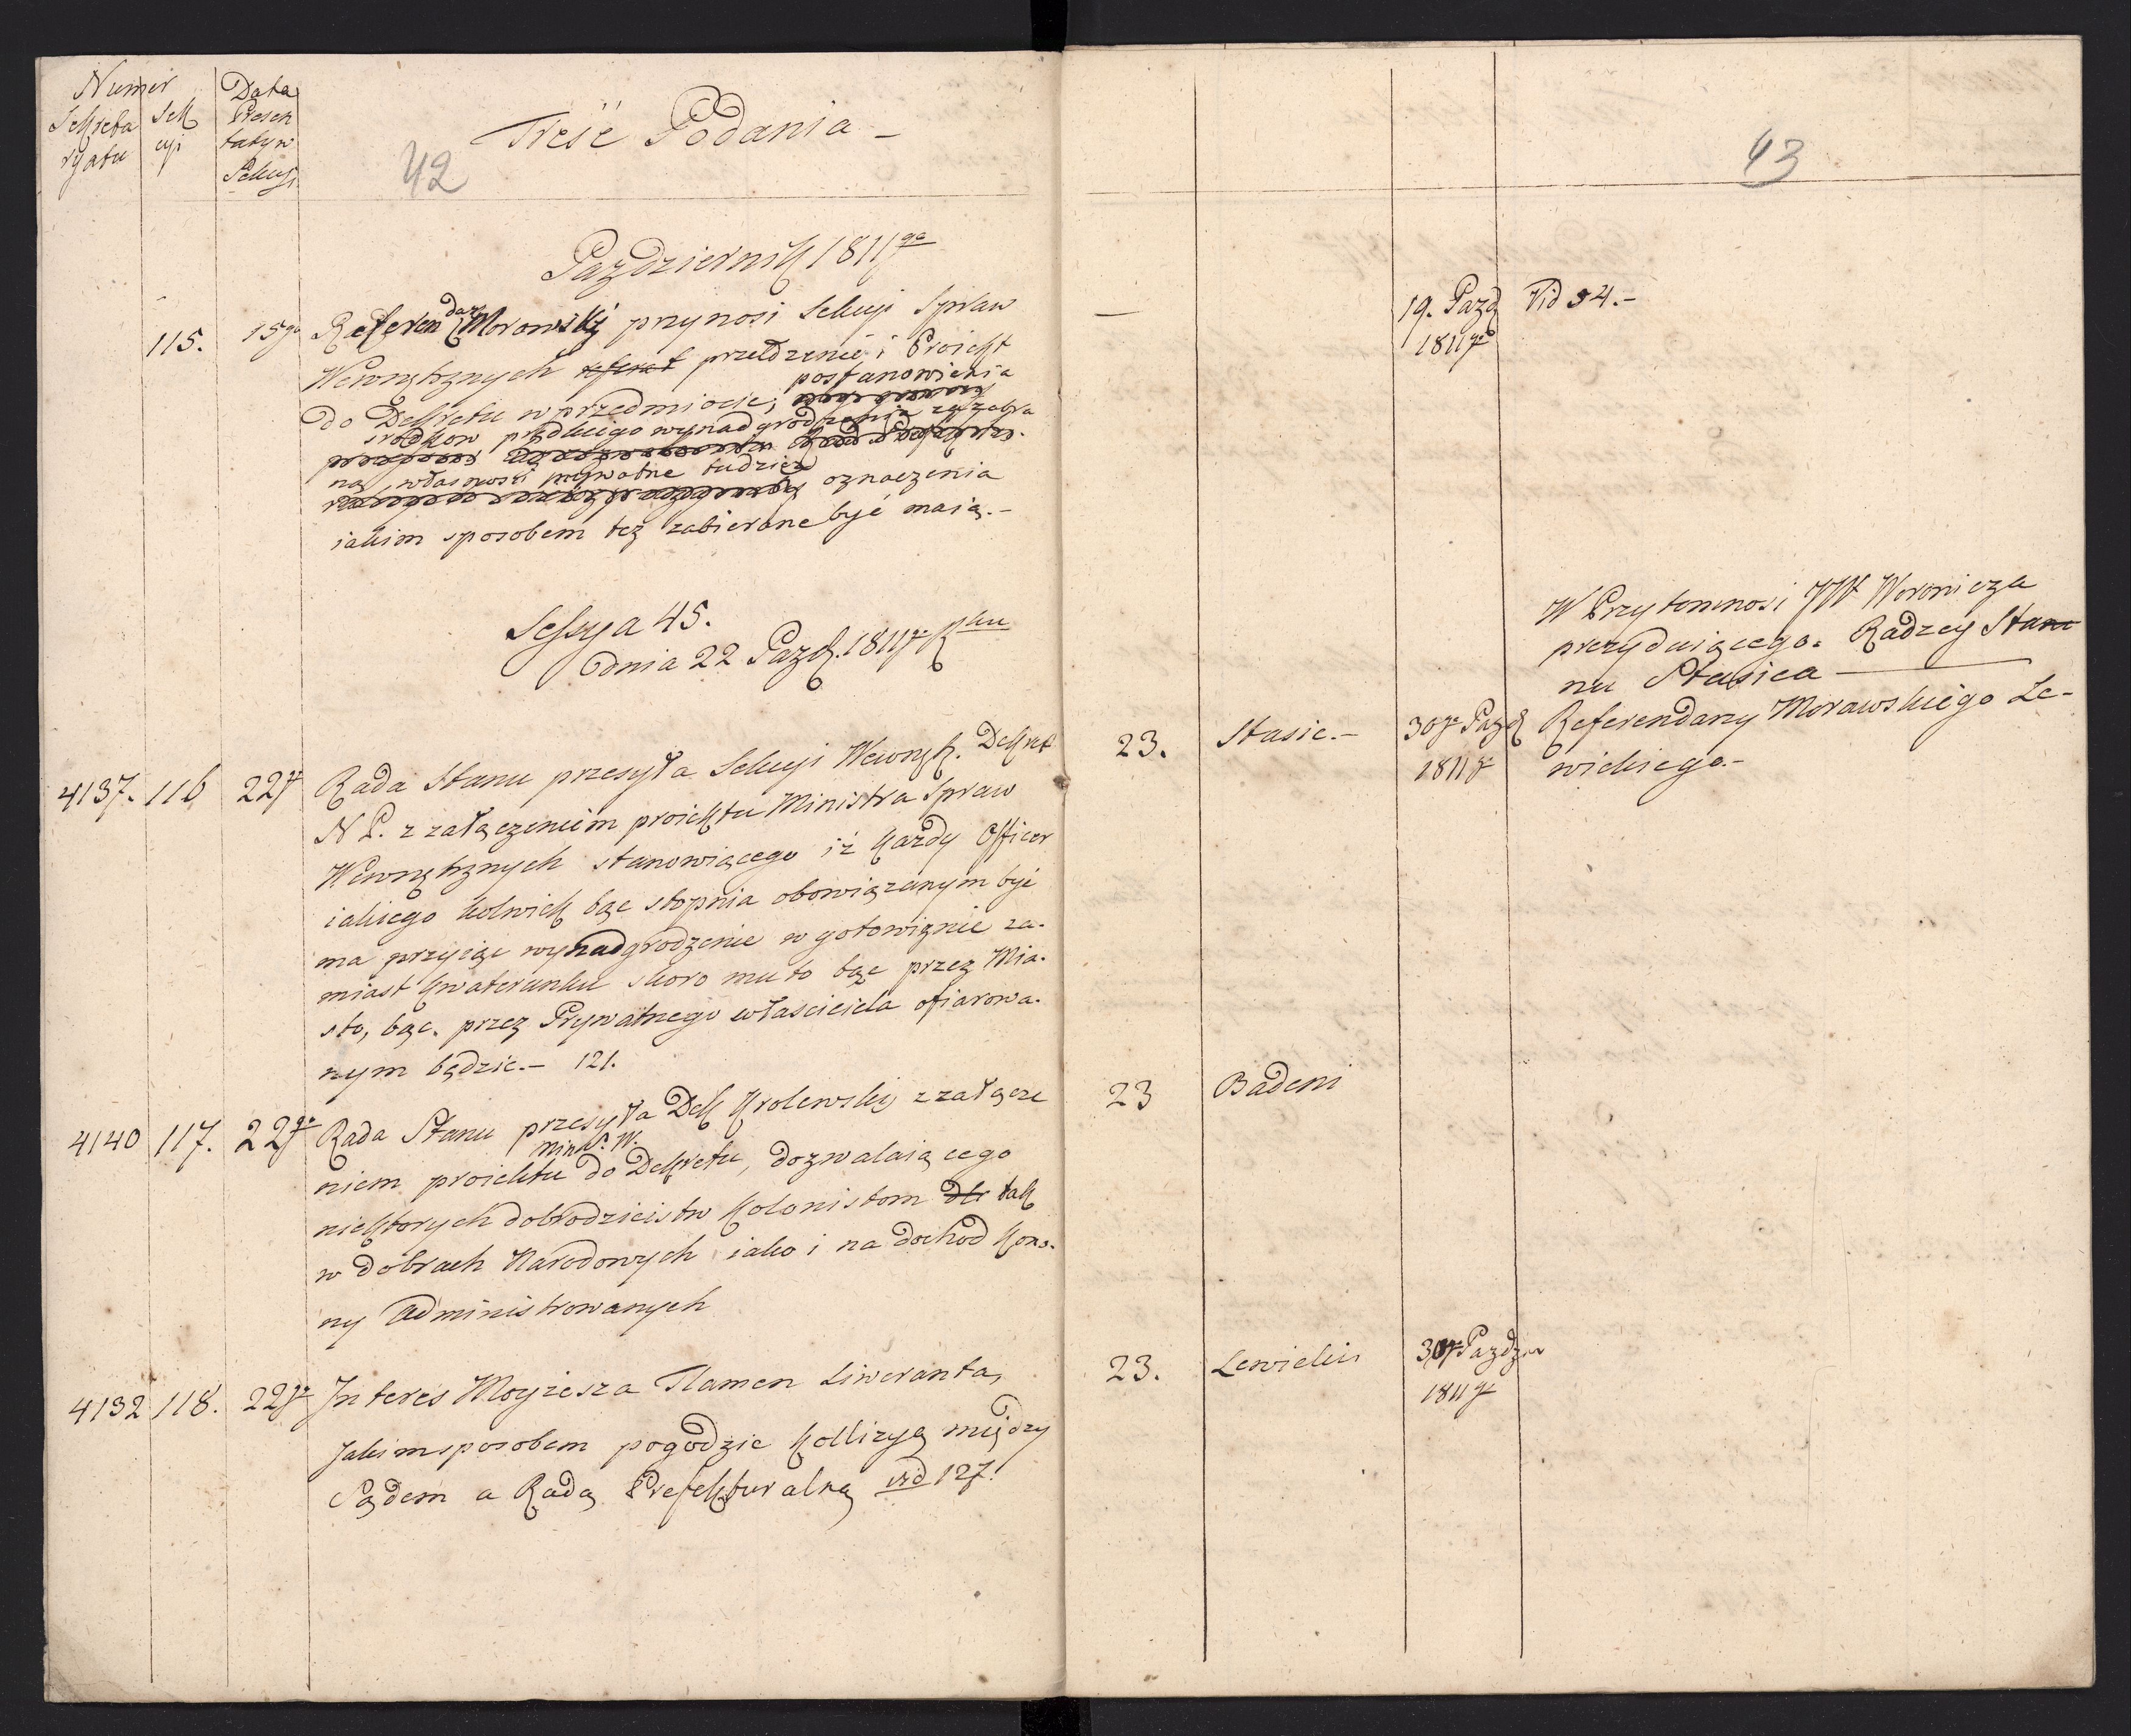 Numer
Sekreta
ryatu
Sek
cyi
Data
Presen
taty w
Sekcyi
Treść Podania –
42
Pazdziernik 1811go
115.
15go
Referendarz Morawski przynosi Sekcyi Spraw
Wewnętrznych referat przełożenie i Proiekt
do Dekretu w przedmiocie; postanowienia
srodkow prędkiego wynadgrodzenia za zabra
ną własność prywatne tudzież
oznaczenia
iakim sposobem też zabierane być maią.–
Sessya 45.
Dnia 22 Pazd. 1811go Rku
4137.
116
22go
Rada Stanu przesyła Sekcyi Wewnętr. Dekret
N P. z załączeniem proiektu Ministra Spraw
Wewnętrznych stanowiącego iż każdy Officer
iakiego kolwiek bąc stopnia obowiązanym być
ma przyiąc wynadgrodzenie w gotowiznie za-
miast kwaterunku skoro mu to bąc przez Mia-
sto, bąc. przez Prywatnego własciciela ofiarowa-
nym będzie.– 121.
4140
117.
22go
Rada Stanu przesyła Dek Krolewski z załącze
niem proiektu Mina S. W. do Dekretu, dozwalaiącego
niektorych dobrodzieistw kolonistom dla tak
w dobrach Narodowych iako i na dochod koro-
ny administrowanych
4132
118.
22go
Interes Moyżesza Tlamen Liweranta,
Jakim sposobem pogodzic kollizyą między
Sądem a Radą Prefekturalną vid 127.
43
—
19. Pazd
1811go
Vid 94.–
W Przytomnosi JW Woronicza
prezyduiącego. Radzcy Stanu
nu Stasica
Referendarzy Morawskiego Le-
wickiego.–
23.
Stasic.–
30go Pazd
1811go
23
Badeni
23.
Lewicki
30go Pazdzier
1811go